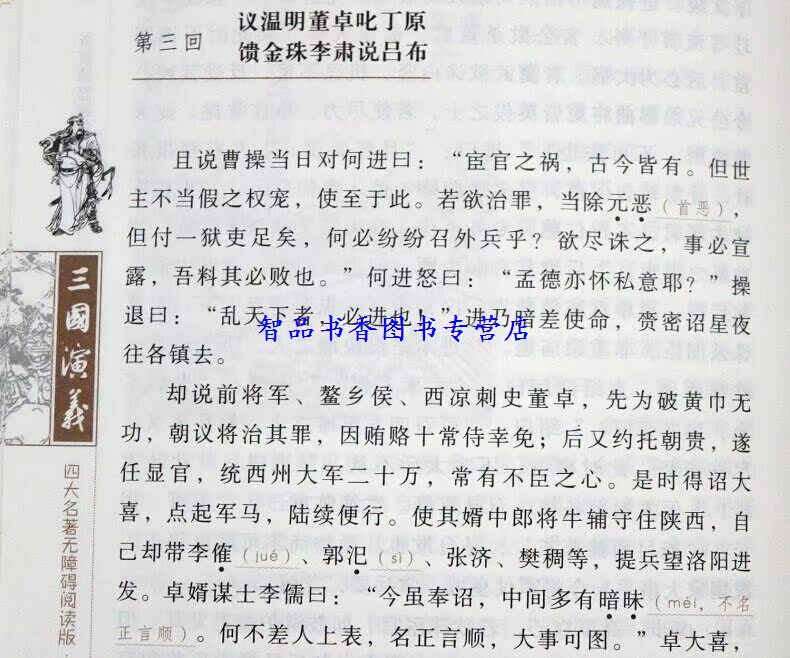 第三回
议温明董卓叱丁原
馈金珠李肃说吕布
且说曹操当日对何进曰：“宦官之祸，古今皆有。但世
主不当假之权宠，使至于此。若欲治罪，当除元恶（首恶），
但付一狱吏足矣，何必纷纷召外兵乎？欲尽诛之，事必宣
露，吾料其必败也。”何进怒曰：“孟德亦怀私意耶？”操
退曰：“乱天下者，必进也！”进乃暗差使命，赍密诏星夜
往各镇去。
却说前将军、鳌乡侯、西凉刺史董卓，先为破黄巾无
功，朝议将治其罪，因贿赂十常侍幸免；后又约托朝贵，遂
任显官，统西州大军二十万，常有不臣之心。是时得诏大
喜，点起军马，陆续便行。使其婿中郎将牛辅守住陕西，自
己却带李傕（jué）、郭汜（sì）、张济、樊稠等，提兵望洛阳进
发。卓婿谋士李儒曰：“今虽奉诏，中间多有暗昧（mèi，不名
正言顺）。何不差人上表，名正言顺，大事可图。”卓大喜，
三國演義
四大名著无障碍阅读版
智品书香图书专营店